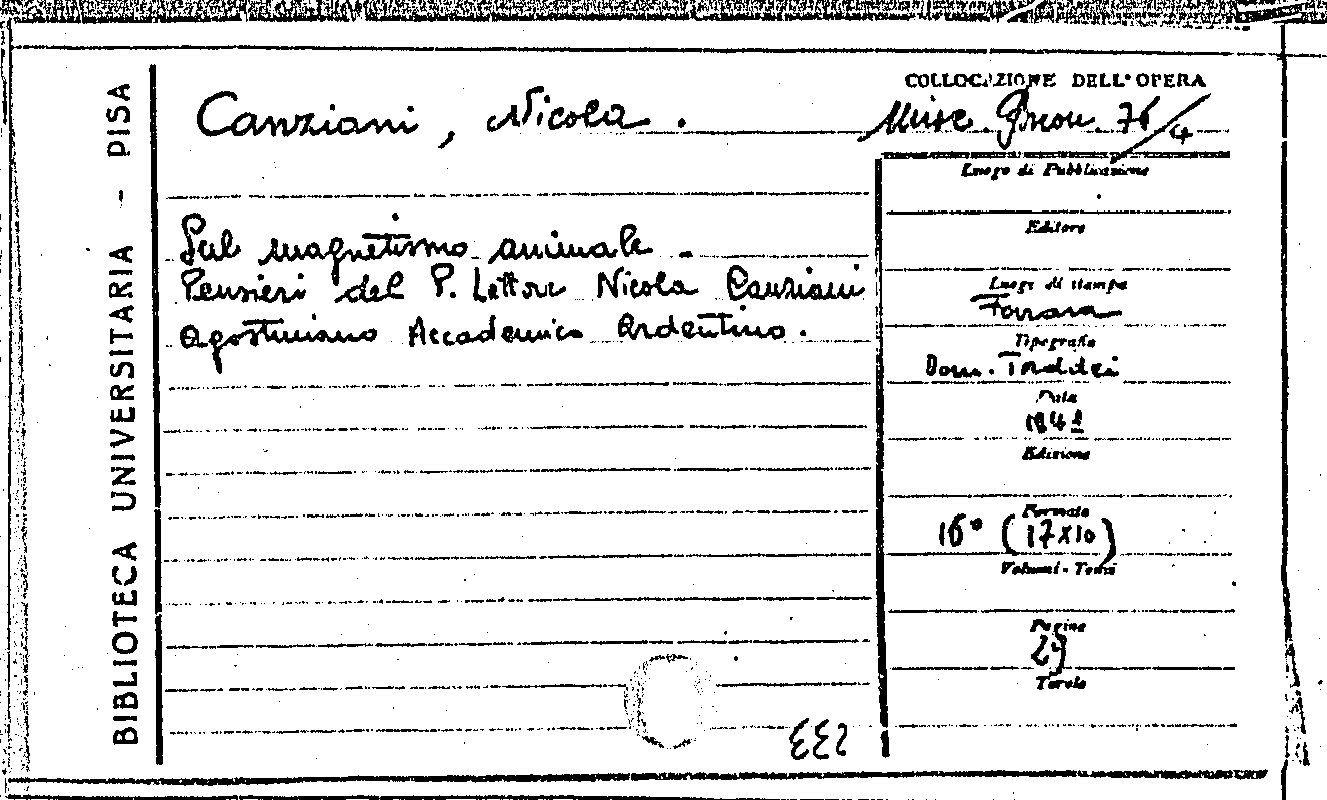 BIBLIOTECA UNIVERSITARIA - PISA
Canziani, Nicola.
Sul magnetismo animale -
Pensieri del P. Lettore Nicola Canziani
Agostiniano Accademico Ardentino.
COLLOCAZIONE DELL'OPERA
Misc. 76/4
Luogo di Pubblicazione
Editore
Luogo di stampa
Ferrara
Tipografo
Dom. Taddei
Data
Edizione
Formato
16° (17x10)
Volumi - Tomi
Pagine
29
Tavole